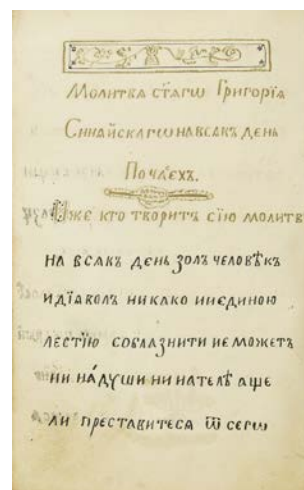 Молитва ст҃агѡ Григорїа
Синайскагѡ на всакъ день
Почаехъ.
Иже кто творитъ сїю молитв
на всакъ день золъ человѣкъ
и дїаволъ никако ни единою
лестїю соблазнити не можетъ
ни на́ души ни на телѣ аще
ли преставитеса ѿ сегѡ